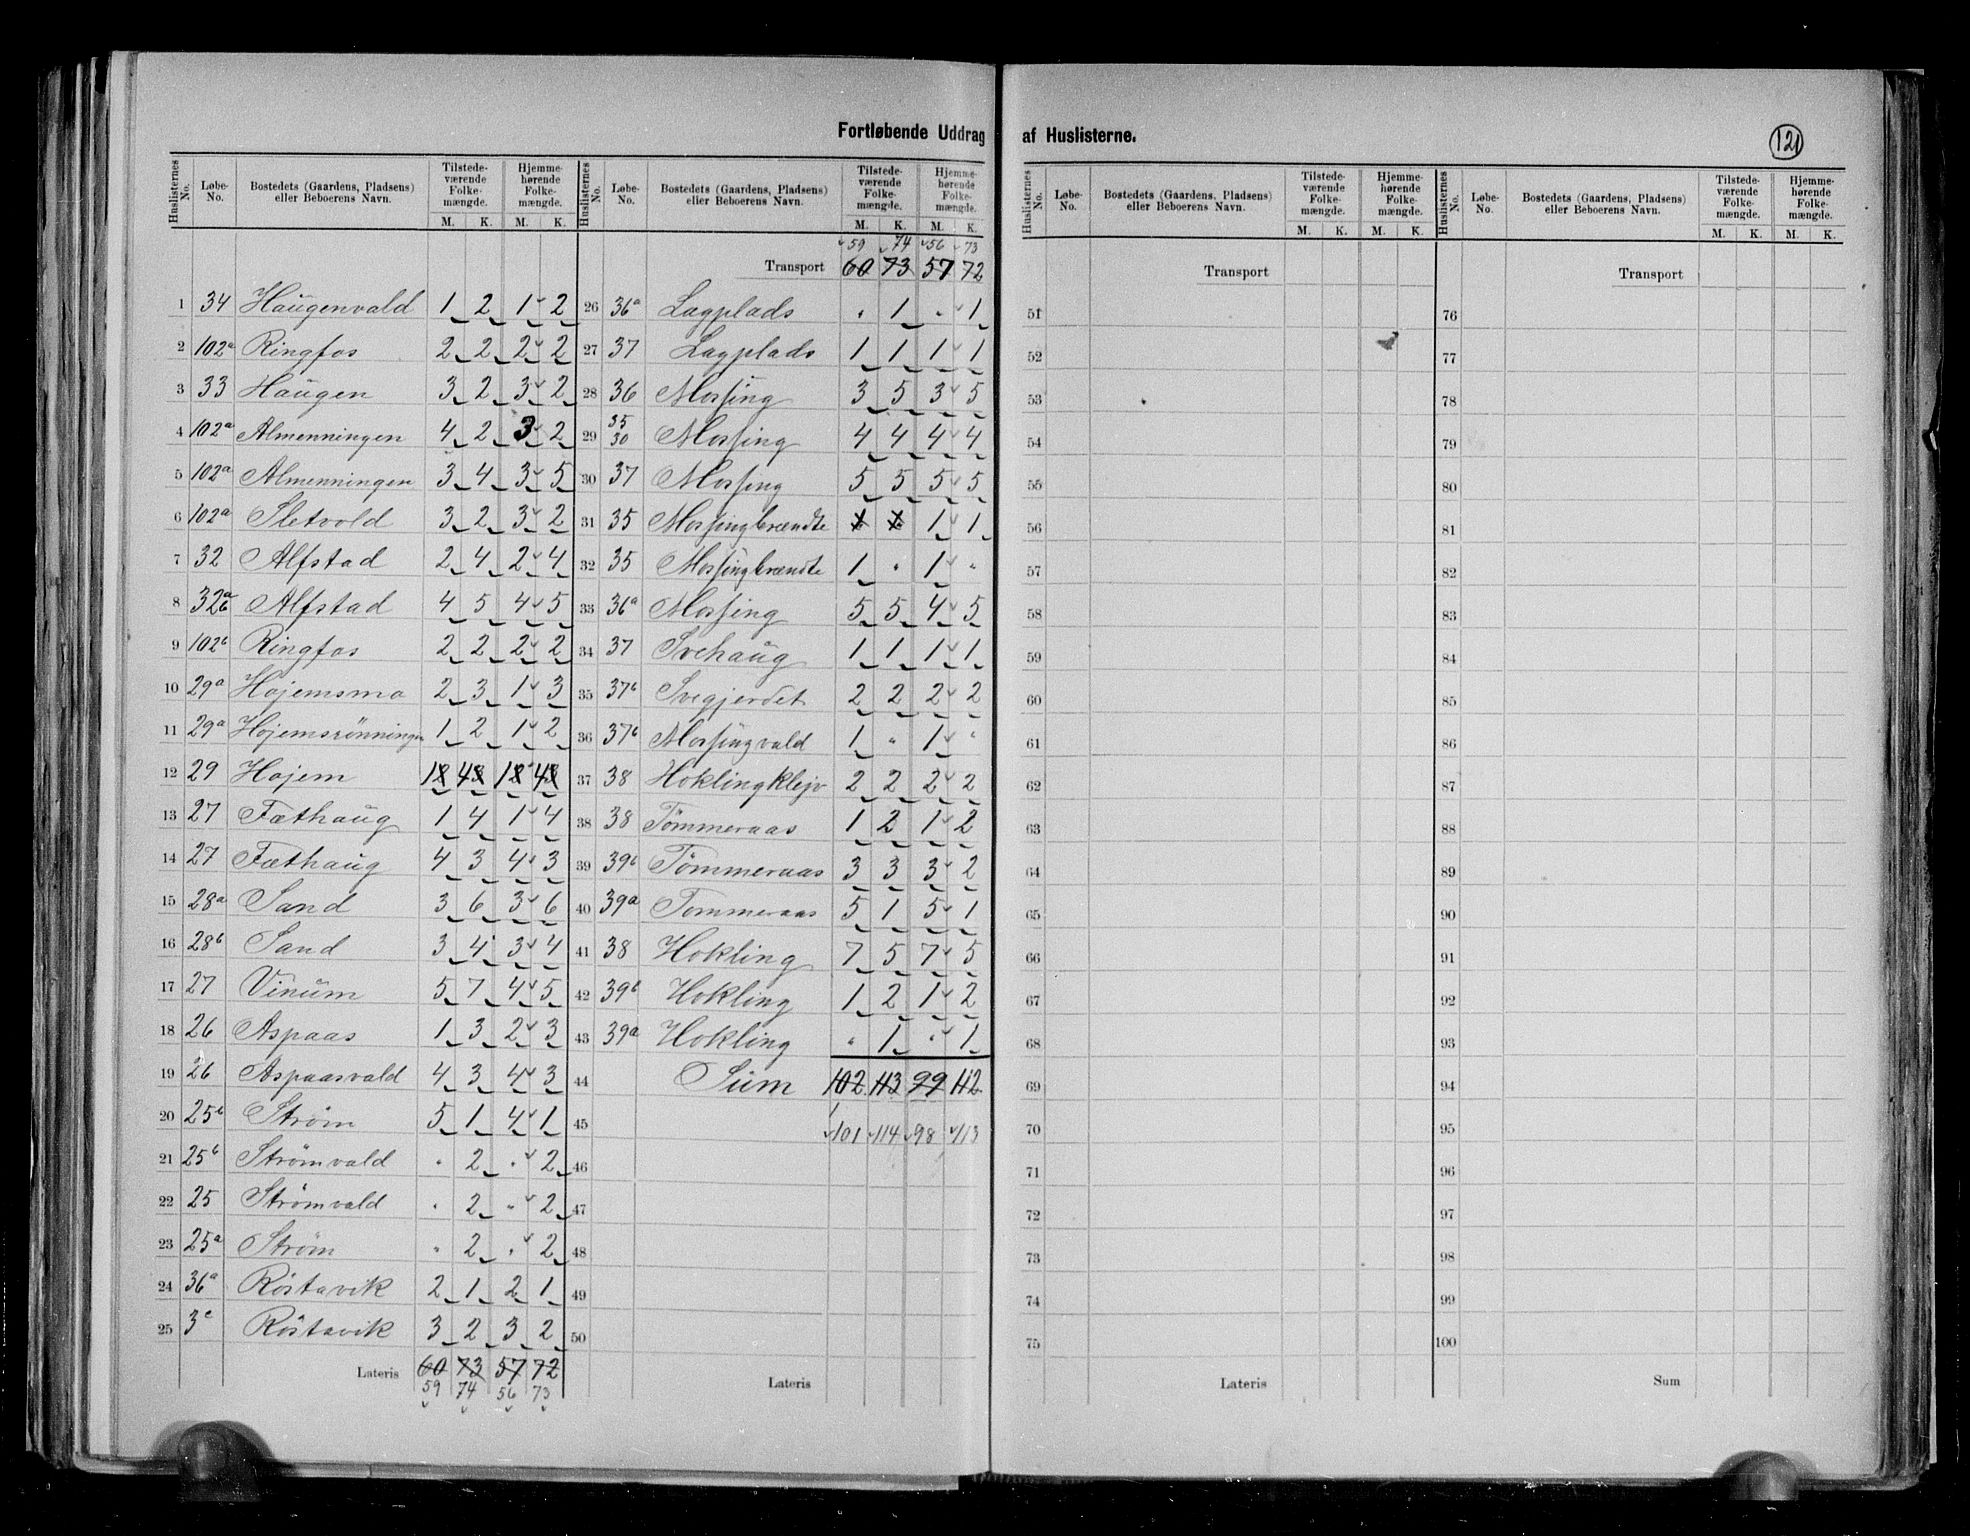 Fortløbende Uddrag af Huslisterne.
121
Huslisternes No. Løbe-No. Bostedets (Gaardens, Pladsens) eller Beboerens Navn. Tilstedeværende Folkemængde. M. K. Hjemmehørende Folkemængde. M. K.
1 34 Haugenvald 1 2 1 2
2 102a Ringfos 2 2 2 2
3 33 Haugen 3 2 3 2
4 102a Almenningen 4 2 3 2
5 102a Almenningen 3 4 3 5
6 102a Sletvold 3 2 3 2
7 32 Alfstad 2 4 2 4
8 32 Alfstad 4 5 4 5
9 102b Ringfos 2 2 2 2
10 29a Hojemsmo 2 3 1 3
11 29a Hojemsrönningen 1 2 1 2
12 29 Hojem
13 27 Fæthaug 1 4 1 4
14 27 Fæthaug 4 3 4 3
15 28a Sand 3 6 3 6
16 28b Sand 3 4 3 4
17 27 Vinum 5 7 4 5
18 26 Aspaas 1 3 2 3
19 26 Aspaasvald 4 3 4 3
20 25b Strøm 5 1 4 1
21 25b Strømvald " 2 " 2
22 25 Strømvald " 2 " 2
23 25a Strøm " 2 " 2
24 36a Röstavik 2 1 2 1
25 Röstavik 3 2 3 2
Lateris 60 73 57 72
59 74 56 73
Huslisternes No. Løbe-No. Bostedets (Gaardens, Pladsens) eller Beboerens Navn. Tilstedeværende Folkemængde. M. K. Hjemmehørende Folkemængde. M. K.
59 74 56 73
Transport 60 73 57 72
26 36a Lagplads " 1 " 1
27 37 Lagplads 1 1 1 1
28 36 Mossing 3 5 3 5
29 35 30 Mossing 4 4 4 4
30 37 Mossing 5 5 5 5
31 35 Mossingbrændte 1 1
32 35 Mossingbrændte 1 " 1 "
33 36a Mossing 5 5 4 5
34 37 Svehaug 1 1 1 1
35 37b Svegjerdet 2 2 2 2
36 37b Mossingvald 1 " 1 "
37 38 Hoklingklejv 2 2 2 2
38 38 Tömmeraas 1 2 1 2
39 39b Tömmeraas 3 3 3 2
40 39a Tömmeraas 5 1 5 1
41 38 Hokling 7 5 7 5
42 39b Hokling 1 2 1 2
43 39a Hokling " 1 " 1
44 Sum 102 113 99 112
45 101 114 98 113
46
47
48
49
50
Lateris
Huslisternes No. Løbe-No. Bostedets (Gaardens, Pladsens) eller Beboerens Navn. Tilstedeværende Folkemængde. M. K. Hjemmehørende Folkemængde. M. K.
Transport
51
52
53
54
55
56
57
58
59
60
61
62
63
64
65
66
67
68
69
70
71
72
73
74
75
Lateris
Huslisternes No. Løbe-No. Bostedets (Gaardens, Pladsens) eller Beboerens Navn. Tilstedeværende Folkemængde. M. K. Hjemmehørende Folkemængde. M. K.
Transport
76
77
78
79
80
81
82
83
84
85
86
87
88
89
90
91
92
93
94
95
96
97
98
99
100
Sum